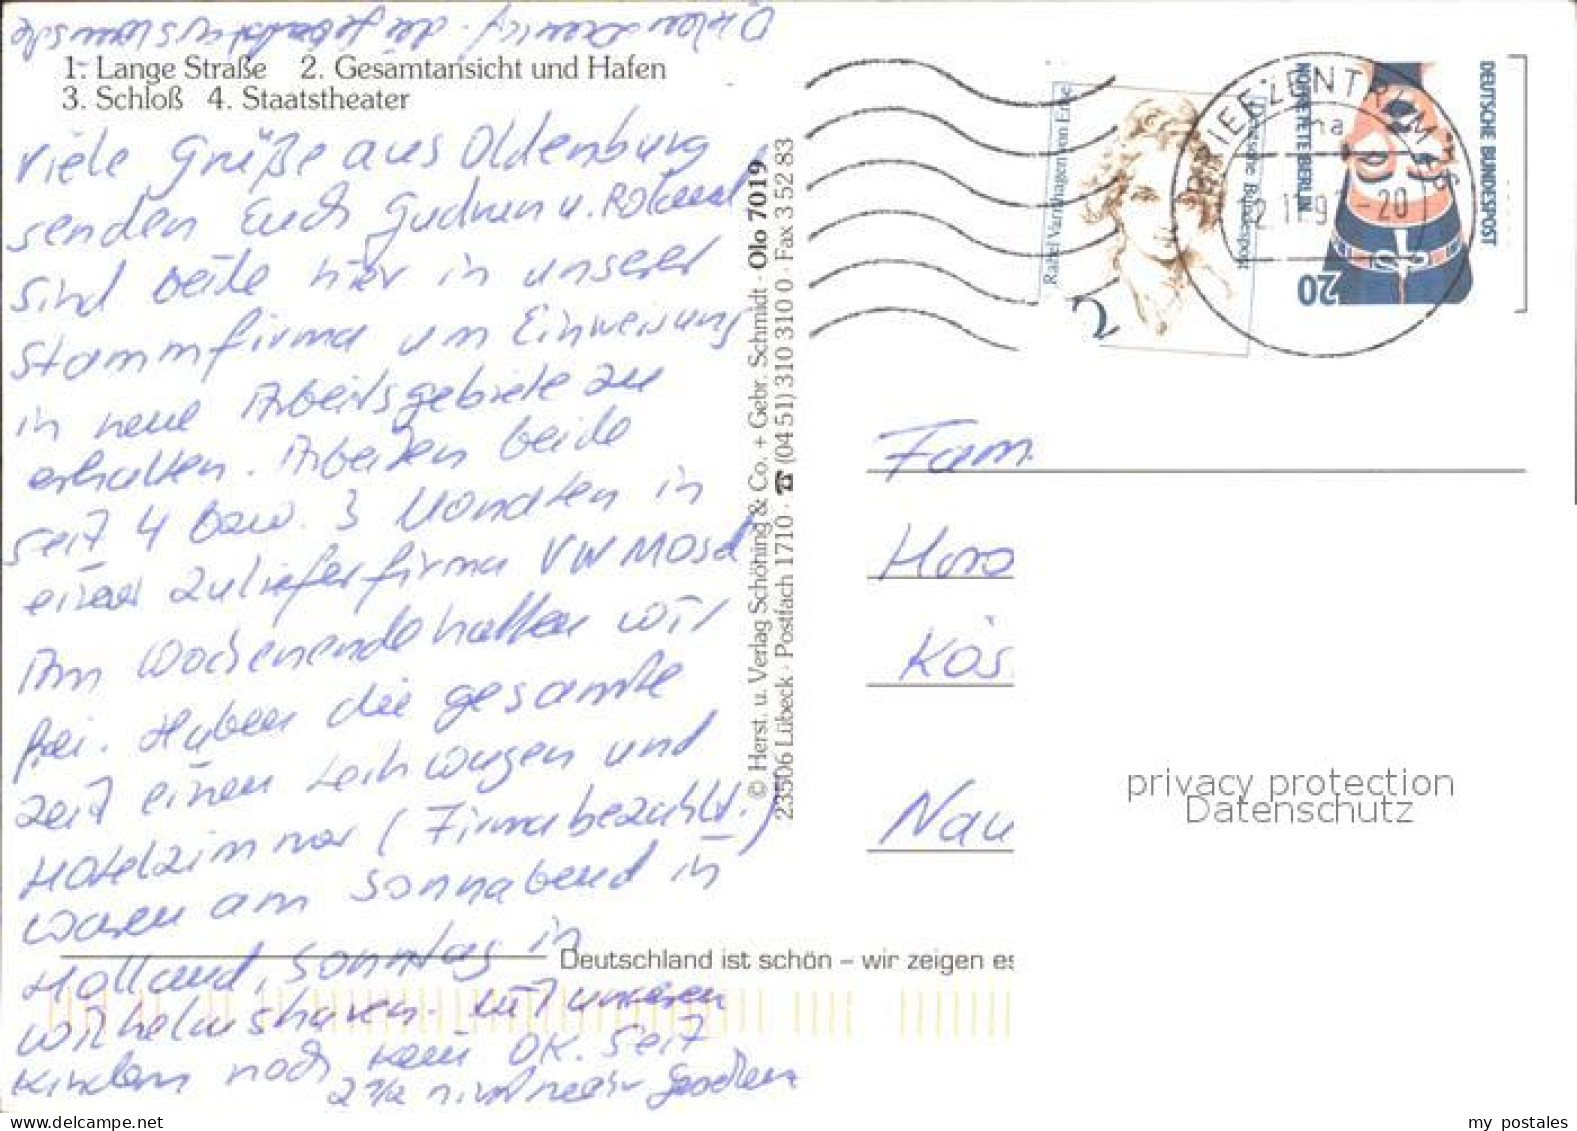 1. Lange Straße 2. Gesamtansicht und Hafen
3. Schloß 4. Staatstheater
Viele Grüße aus Oldenburg
senden Euch Gudrun u. Roland
Sind beide hier in unserer
Stammfirma um Einweisung
in neue Arbeitsgebiete zu
erhalten. Arbeiten beide
seit 4 bzw. 3 Monaten in
einer Zulieferfirma VW Mosel
Am Wochenende hatten wir
frei. Haben die gesamte
Zeit einen Leihwagen und
Hotelzimmer (Firma bezahlt.)
waren am Sonnabend in
Holland, Sonntag in
Wilhelmshaven. Mit unseren
Kindern noch kein OK. Seit
2 1/2 nicht mehr gesehen
© Herst. u. Verlag Schöning & Co. + Gebr. Schmidt · Olo 7019
23506 Lübeck · Postfach 1710 · ☎ (04 51) 310 310 0 · Fax 3 52 83
Rahel Varnhagen von Ense
Deutsche Bundespost
2
BRIEFZENTRUM
-20
NOFRETETE BERLIN
DEUTSCHE BUNDESPOST
20
Fam.
Hors
Kös
Nau
privacy protection
Datenschutz
Deutschland ist schön – wir zeigen es
my postales